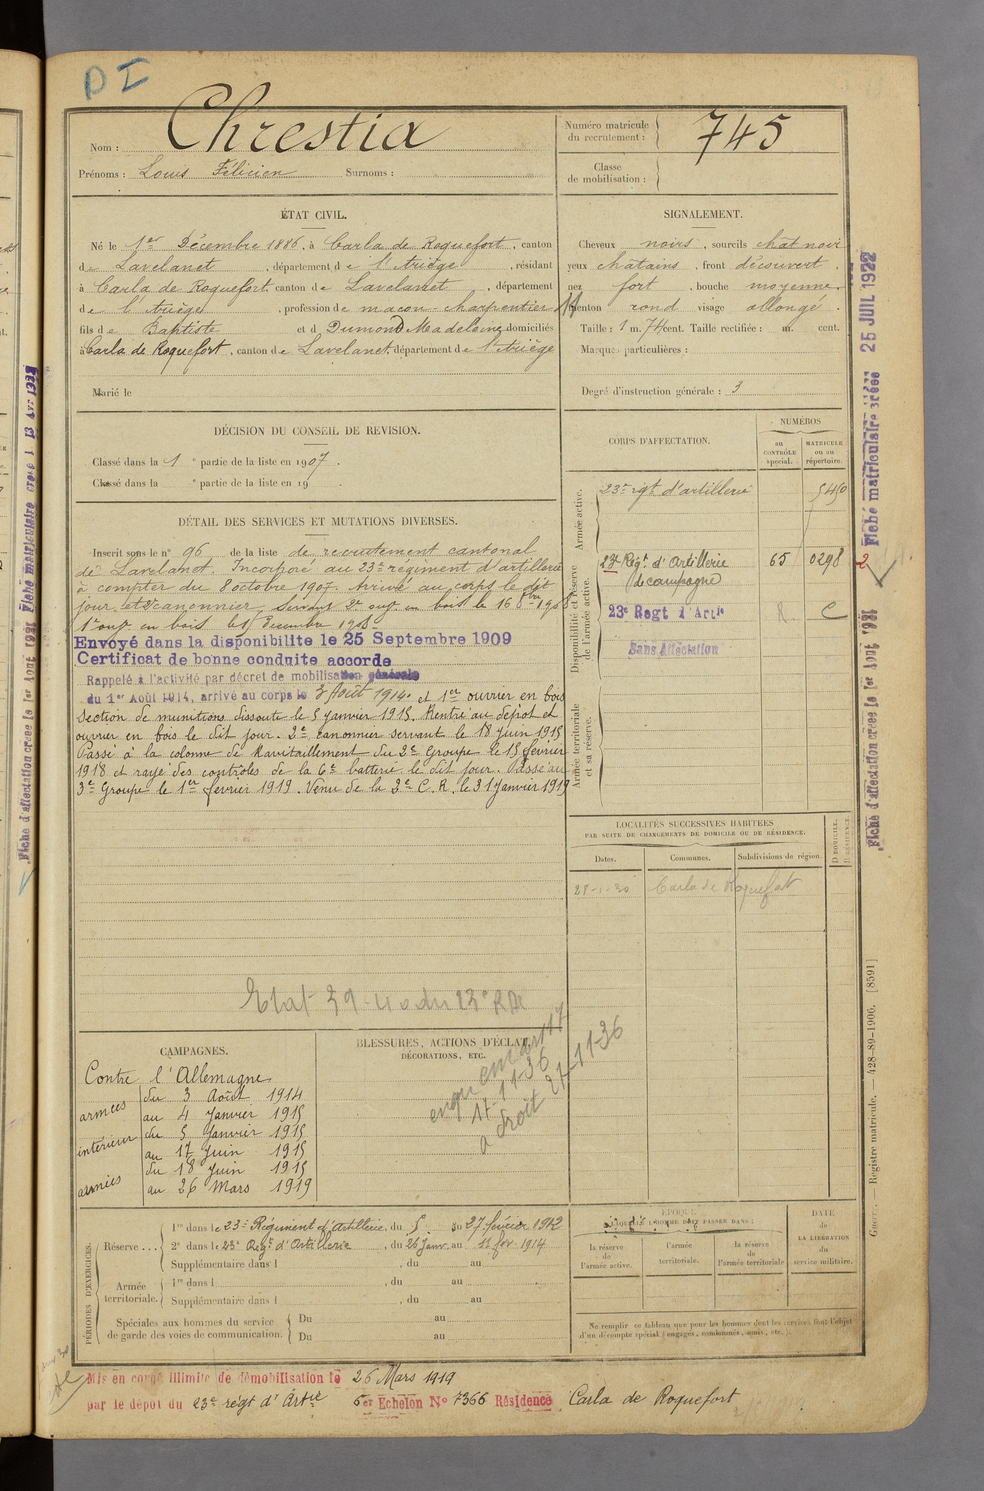 D I
Nom : Chrestia
Prénoms : Louis Félicien Surnoms :
Numéro matricule du recrutement : 745
Classe de mobilisation :
ÉTAT CIVIL.
Né le 1er Décembre 1886, à Carla de Roquefort, canton
de Lavelanet, département de l'Ariège, résidant
à Carla de Roquefort, canton de Lavelanet, département
de l'Ariège, profession de maçon charpentier
fils de Baptiste et de Dumond Madeleine domiciliés
à Carla de Roquefort, canton de Lavelanet, département de l'Ariège
Marié le
SIGNALEMENT.
Cheveux noirs, sourcils chât noir
yeux châtains, front découvert.
nez fort, bouche moyenne.
menton rond visage allongé.
Taille : 1 m. 74 cent. Taille rectifiée : m. cent.
Marques particulières :
Degré d'instruction générale : 3
DÉCISION DU CONSEIL DE REVISION.
Classé dans la 1e partie de la liste en 1907.
Classé dans la e partie de la liste en 19
DÉTAIL DES SERVICES ET MUTATIONS DIVERSES.
Inscrit sous le n° 96 de la liste de recrutement cantonal
de Lavelanet. Incorporé au 23e régiment d'artillerie
à compter du 8 octobre 1907. Arrivé au corps le dit
jour et 2e canonnier servant 2e ouv en bois le 16 1908
1er ouv en bois le 1908
Envoyé dans la disponibilite le 25 Septembre 1909
Certificat de bonne conduite accorde
Rappelé à l'activité par décret de mobilisation générale
du 1er Août 1914, arrivé au corps le 3 Août 1914. et 1er ouvrier en bois
Section de munitions dissoute le 5 janvier 1915. Rentré au dépôt et
ouvrier en bois le dit jour. 2e canonnier servant le 18 juin 1915
Passé à la colonne de Ravitaillement du 2e Groupe le 15 février
1918 et rayé des contrôles de la 6e batterie le dit jour. Passé au
3e Groupe le 1er février 1919. Venu de la 2e C.R. le 31 janvier 1919
Etat 39-40 du 23e RA
CORPS D'AFFECTATION.
NUMÉROS
au CONTRÔLE spécial.
MATRICULE ou au répertoire.
Armée active.
23e rgt d'artillerie 5450
Disponibilité et réserve de l'armée active.
23e Régt d'Artillerie de campagne 65 0298 2
23e Regt d'Artie R C
Sans Affectation
Armée territoriale et sa réserve.
LOCALITÉS SUCCESSIVES HABITÉES
PAR SUITE DE CHANGEMENTS DE DOMICILE OU DE RÉSIDENCE.
Dates. Communes. Subdivisions de région. D DOMICILE. R RÉSIDENCE.
21-1-30 Carla de Roquefort
CAMPAGNES.
Contre l'Allemagne
armées du 3 Août 1914
au 4 Janvier 1915
intérieur du 5 Janvier 1915
au 17 Juin 1915
armées du 18 Juin 1915
au 26 Mars 1919
BLESSURES, ACTIONS D'ÉCLAT,
DÉCORATIONS, ETC.
17-11-36
a droit 27-11-36
PÉRIODES D'EXERCICES.
Réserve... 1re dans le 23e Régiment d'Artillerie, du 5 au 27 février 1912
2e dans le 23e Régt d'Artillerie, du 26 Janv. au 11 fév. 1914
Supplémentaire dans l , du au
Armée territoriale. 1re dans l , du au
Supplémentaire dans l , du au
Spéciales aux hommes du service de garde des voies de communication. Du au
Du au
ÉPOQUE
À LAQUELLE L'HOMME DOIT PASSER DANS :
la réserve de l'armée active.
l'armée territoriale.
la réserve de l'armée territoriale
DATE de LA LIBÉRATION du service militaire.
Ne remplir ce tableau que pour les hommes dont les services font l'objet
d'un décompte spécial (engagés, condamnés, omis, etc.).
Mis en congé illimité de démobilisation le 26 Mars 1919
par le dépôt du 23e régt d'Artie 6er Echelon No 7366 Résidence Carla de Roquefort
Fiché matriculaire créée 25 JUIL 1922
Fiche d'affectation créée le 1er Août 1921
— Registre matricule. — 428-89-1906. [8591]
Fiche d'affectation créée le 1er Août 1921